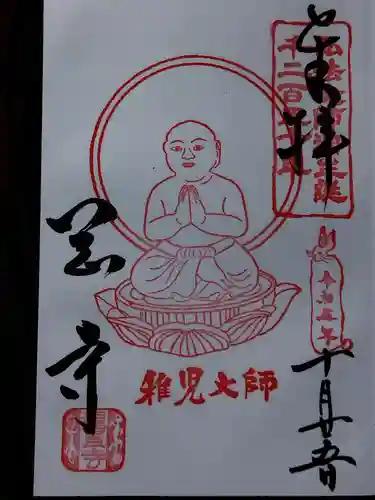 奉拝
弘法大師御生誕
千二百五十年
令和五年
十月廿五日
稚児大師
岡寺